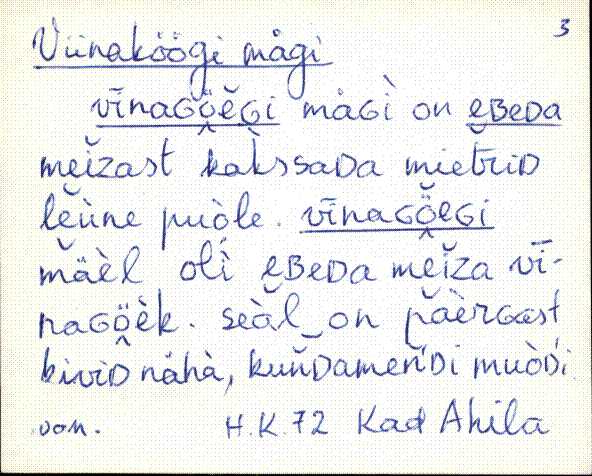 3
Viinaköögi mägi
vīnaGö̭ĕGi mäGì on eBeDa
mĕĭzast kakssada mietrìD
lĕùne puòle. vīnaGö̭ĕGi
mäèl olì eBeDa mĕĭza vī-
naGö̭èk. seàl on päèrGast
kiviD nähà, kuńDameńDi muòDi
H.K. 72 Kad Ahila